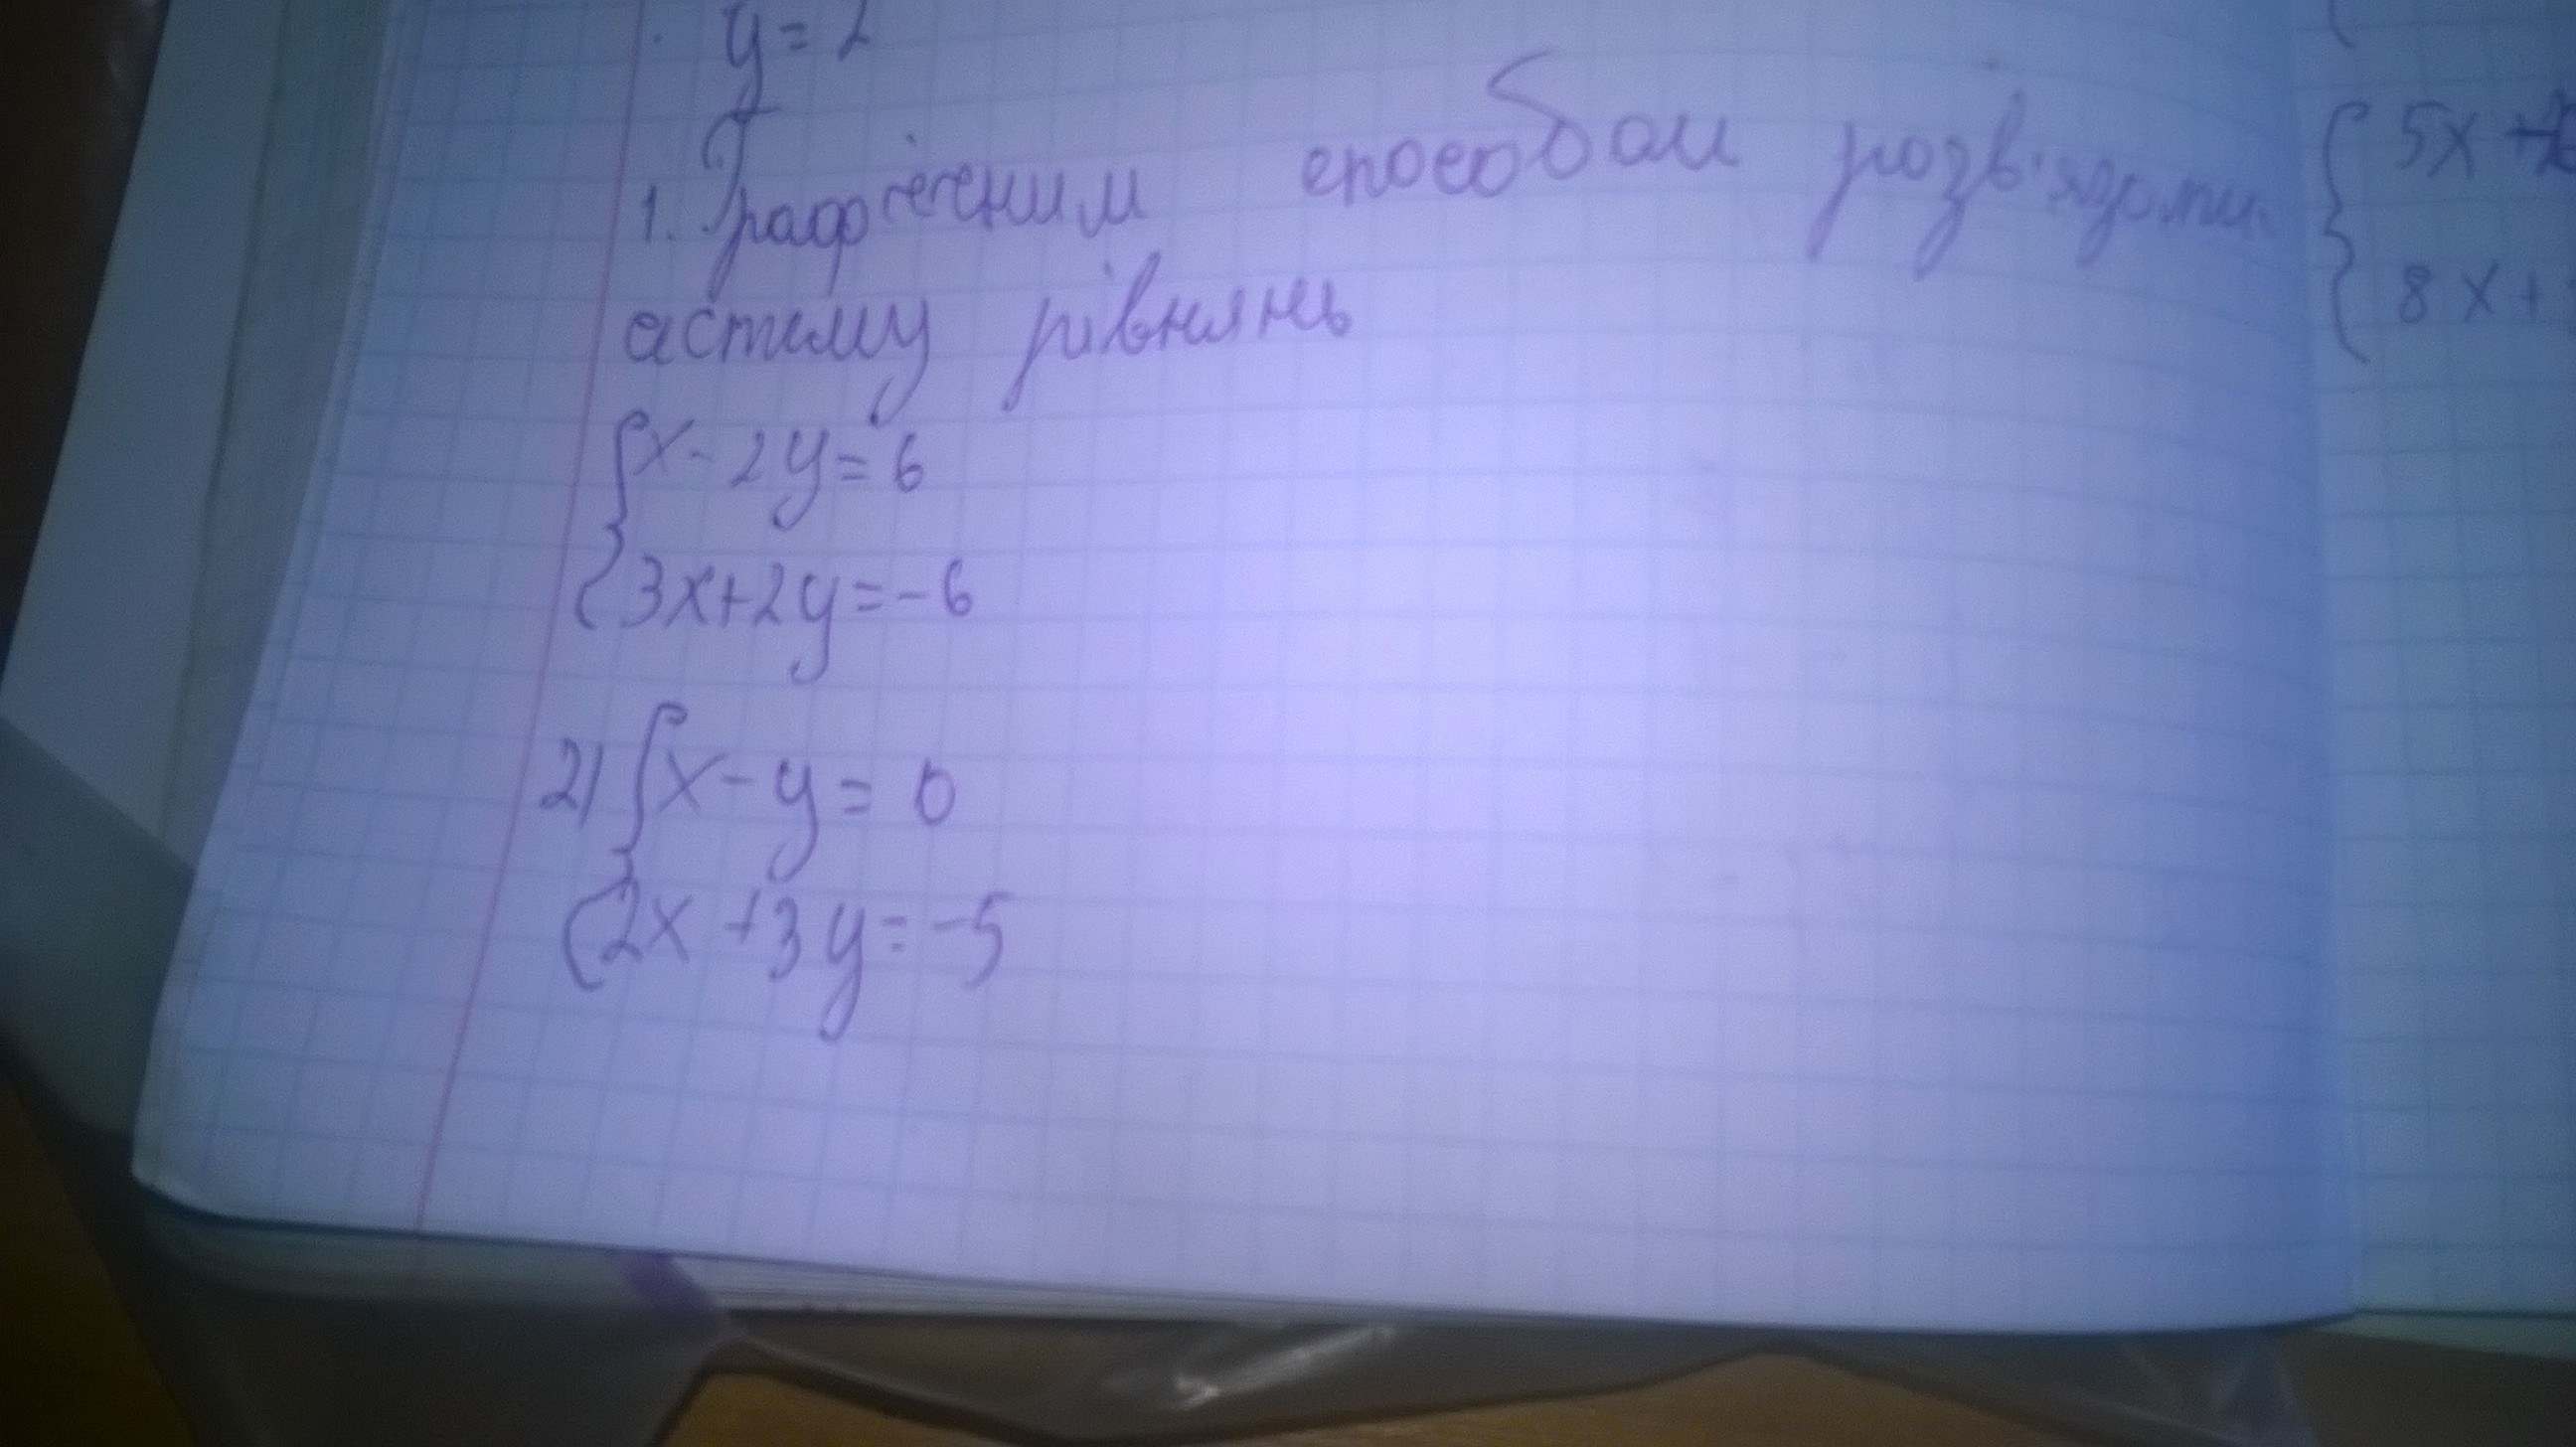 y = 2
1. Графічним способом розв'язати
систему рівнянь
{ x - 2y = 6
3x + 2y = -6
2) { x - y = 0
2x + 3y = -5
{ 5x +
8x +